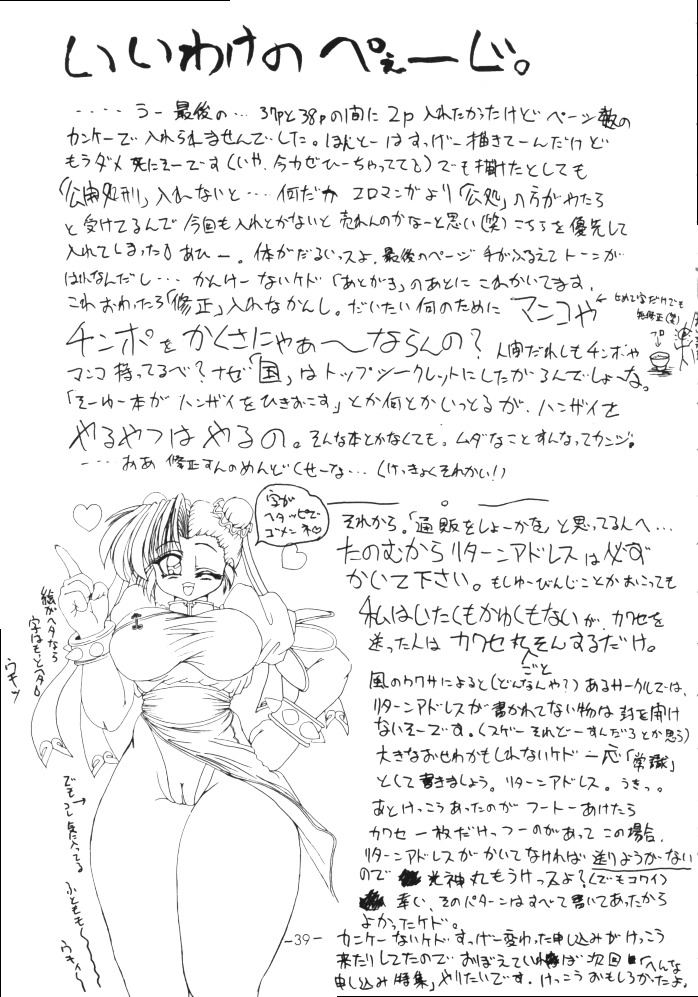 いいわけの ぺぇーじ。
・・・・うー 最後の… 37Pと38Pの間に 2P 入れたかったけど ページ数の
カンケーで 入れられませんでした。ほんとーはすっげー描きてーんだけど
もうダメ 死にそーです(いや、今カゼひーちゃっててδ) でも描けたとしても
「公開処刑」入れないと… 何だか エロマンガより「公処」の方がやたら
と受けてるんで 今回も入れとかないと 売れんのかなーと思い(笑) こちらを優先して
入れてしまったδ あひー。体がだるいっスよ、最後のページ 手がふるえてトーンが
はれなんだし… かんけーないケド「あとがき」のあとに これかいてます。
これおわったら「修正」入れなかんし。だいたい何のために マンコや
チンポを かくさにゃぁ〜ならんの? 人間だれしもチンポや
マンコ 持ってるべ? ナゼ「国」はトップシークレットにしたがるんでしょーな。
「そーゆー本が ハンザイをひきおこす」とか何とかいっとるが、ハンザイを
やるやつは やるの。そんな本とかなくても。ムダなことすんなってカンジ。
・・・ああ 修正すんのめんどくせーな…(けっきょくそれかい!)
せめて字だけでも
無修正(笑)
プロ
字が
ヘタッピで
ゴメンネ♡
絵がヘタなら
字はもっとヘタδ
ウキッ
でもコレ気に入ってる
ふともも〜
ウキィー
それから。「通販をしょーかな」と思ってる人へ…
たのむから リターンアドレスは必ず
かいて下さい。もしゆーびんじことかおこっても
私はいたくもかゆくもないが、カワセを
送った人は カワセ丸ごとそんするだけ。
風のウワサによると(どんなんや?) あるサークルでは、
リターンアドレスが書かれてない物は 封を開け
ないそーです。(スゲー それどーすんだろとか思う)
大きなおせわかもしれないケド 一応「常識」
として書きましょう。リターンアドレス。うきっ。
あとけっこうあったのが フートーあけたら
カワセ一枚だけっつーのがあって この場合、
リターンアドレスがかいてなければ 送りようがない
ので 光神丸もうけっスよ?(でもコワイ)
幸い、そのパターンはすべて書いてあったから
よかったケド。
カンケーないケド すっげー変わった申し込みがけっこう
来たりしてたので おぼえていれば 次回「へんな
申し込み特集」やりたいです。けっこうおもしろかったよ。
-39-